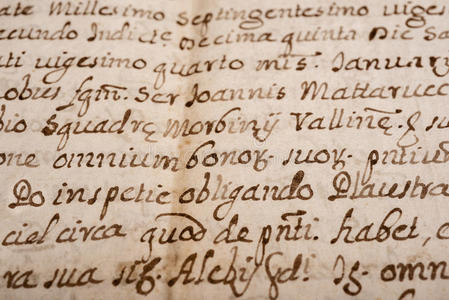 ate Millesimo Septingentesimo viges
ecundo Indictẽ Decima quinta Die Sa
ati vigesimo quarto mis̃. January
obus fqm̃. Ser Joannis Mattarucc
bio Squadrę Morbinij Vallinẽ. & su
one omnium bonoꝝ. suoꝝ. pñtiur
Do in spetie obligando Plaustra
ciel circa quod de pñti. habet, e
ra sua sig. Alehij omn